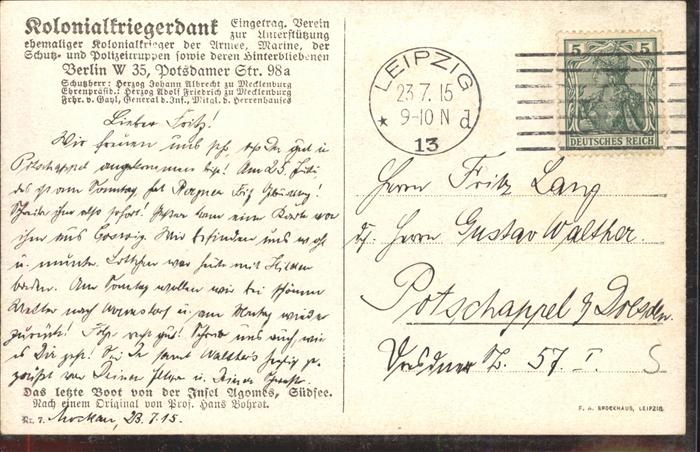 Kolonialkriegerdank Eingetrag. Verein
zur Unterstützung
ehemaliger Kolonialkrieger der Armee, Marine, der
Schutz- und Polizeitruppen sowie deren Hinterbliebenen
Berlin W 35, Potsdamer Str. 98a
Schutzherr: Herzog Johann Albrecht zu Mecklenburg
Ehrenpräsid.: Herzog Adolf Friedrich zu Mecklenburg
Frhr. v. Gayl, General d. Inf., Mitgl. d. Herrenhauses
Lieber Fritz!
Wir freuen uns sehr, daß Du gut in
Potschappel angekommen bist! Am 25. Juli
das ist am Sonntag, hat
Schreibe ihm also sofort! kam eine Karte von
ihm aus Coswig. Wir befinden uns wohl
u. munter. Lottchen war heute mit Hilden
baden. Am Sonntag wollen wir bei schönem
Wetter nach u. am Montag wieder
zurück! recht gut! Schreib uns auch, wie
es Dir geht! Sei Du samt Walthers herzlich ge-
grüßt von Deinen Eltern u. Deiner
Das letzte Boot von der Insel Agomes, Südsee.
Nach einem Original von Prof. Hans Bohrdt.
Nr. 7. Mockau, 23.7.15.
LEIPZIG
23.7.15
9-10 N
* d
13
5 5
DEUTSCHES REICH
Herrn Fritz Lang
Herrn Gustav Walther.
Potschappel b/Dresden.
Dresdner St. 57. I.
S
F. A. BROCKHAUS, LEIPZIG.